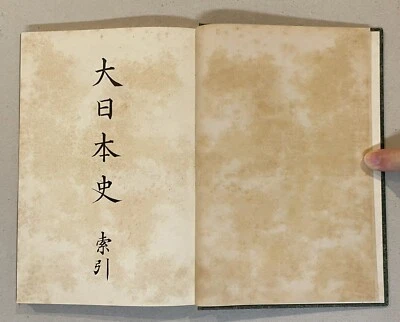 大日本史 索引